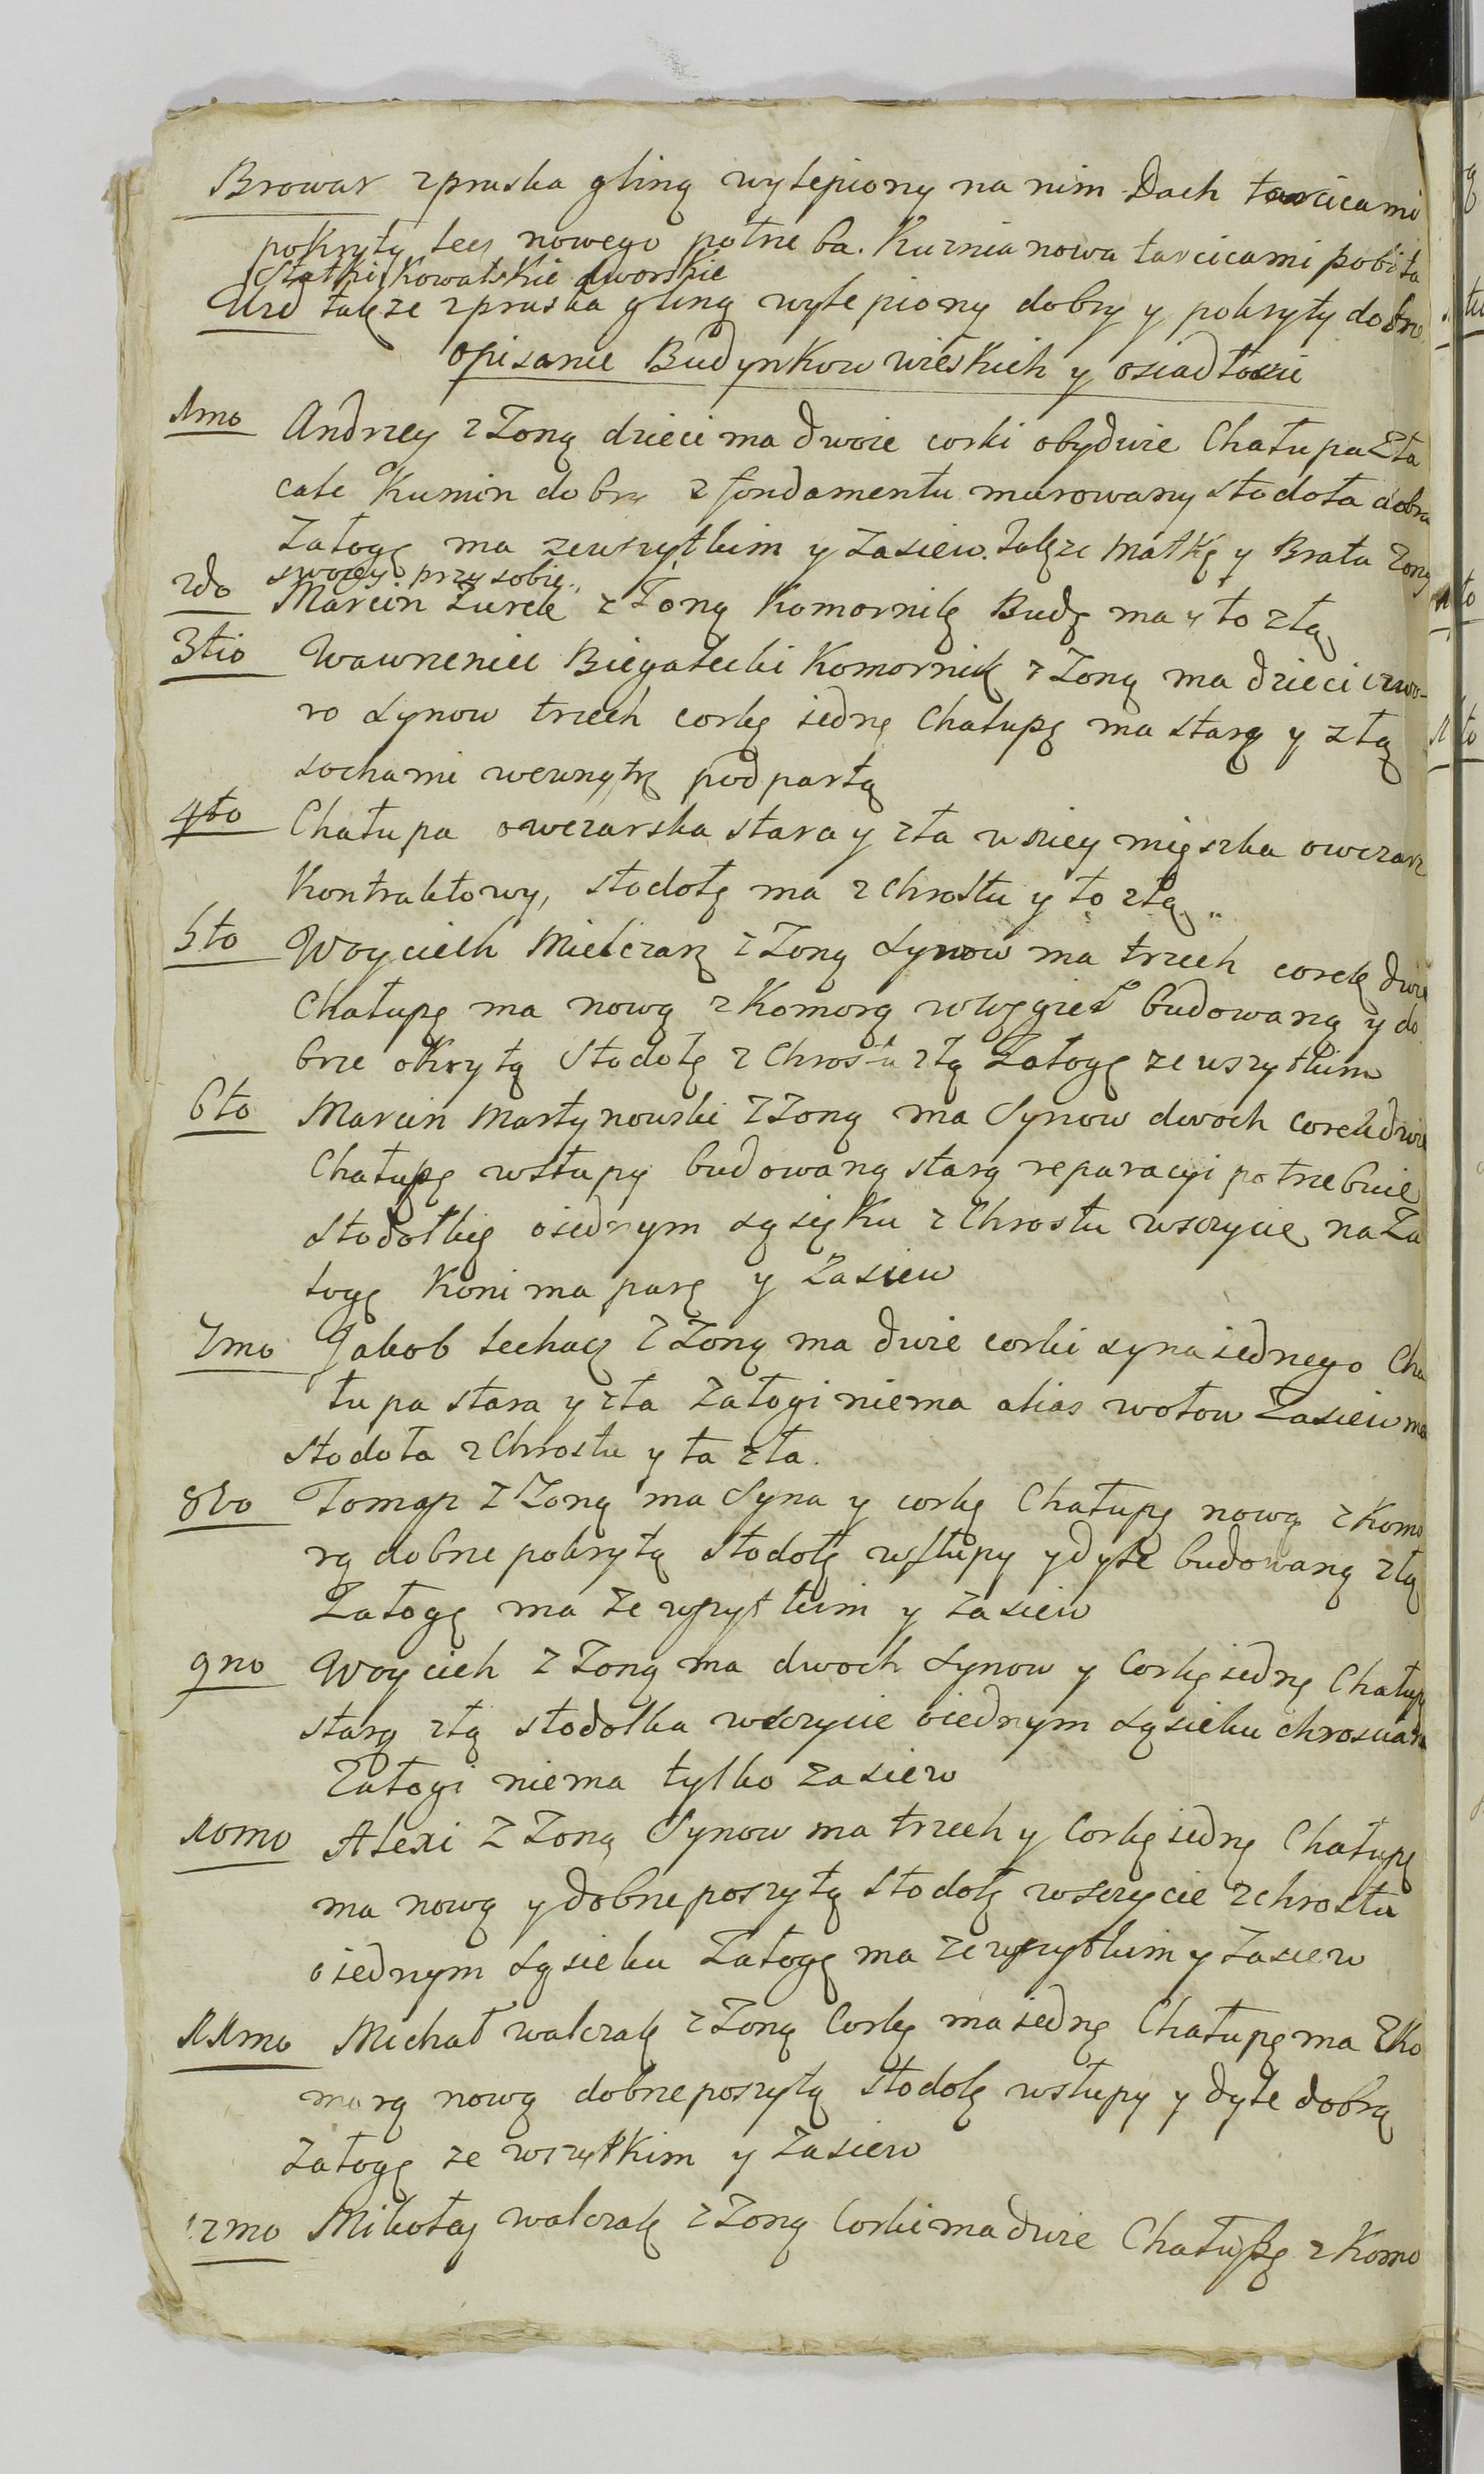 Browar zpruska gliną wylepiony na nim Dach tarcicami
pokryty lecz nowego potrzeba. Kuznia nowa tarcicami pobita
Statki Kowalskie dworskie
także zpruska gliną wylepiony dobry y pokryty dobrze
opisanie Budynkow wieskich y osiadłosci
1mo Andrzey z Zoną dzieci ma dwoie corki obydwie Chałupa Zła
całe Kumin dobry z fondamentu murowany stodoła dobra
Załogę ma zewszytkim y zasiew. Także Matkę y Brata Zony
swoiey przy sobie
2do Marcin Zurek z Zoną Komornik Budę ma y to złą
3tio Wawrzeniec Biegałecki Komornik z Zoną ma dzieci czwo-
ro Synow trzech corkę iednę Chałupę ma starą y złą
sochami wewnątrz podpartą
4to Chałupa owczarska stara y zła w niey mięszka owczarz
Kontraktowy, stodołę ma z chrostu y to złą
5to Woyciech Mielczarz z Zoną Synow ma trzech corek dwie
Chałupę ma nową z Komorą w węgieł budowaną y do
brze okrytą Stodołę z Chrostu złą Załogę ze wszytkim
6to Marcin Martynowski z Zoną ma Synow dwoch Corek dwie
Chałupę wsłupy budowaną starą reparacyi potrzebuie
stodołkię oiednym sąsięku z Chrostu wsczycie na Za
łogę Koni ma parę y Zasiew
7mo Jakob Lechacz z Zoną ma dwie corki syna iednego Cha
łupa stara y zła Załogi niema alias wołow Zasiew ma
stodoła z Chrostu y ta zła.
8vo Tomasz z Zoną ma Syna y corkę Chałupę nową z Komo
rą dobrze pokrytą stodołę wsłupy y dyle budowaną złą
Załogę ma ze wszytkim y zasiew
9no Woyciech z Zoną ma dwoch synow y Corkę iednę Chałupę
starą złą stodołka wsczycie oiednym sąsieku chrosciana
Załogi niema tylko zasiew
10mo Alexi z Zoną Synow ma trzech y Corkę iednę Chałupę
ma nową y dobrze poszytą stodołę wsczycie z chrostu
o iednym sąsieku Załogę ma ze wszytkim y zasiew
11mo Michał walczak z Zoną Corkę ma iednę Chałupę ma z Ko
morą nową dobrze poszytą stodołę wsłupy y dyle dobrą
załogę ze wszytkim y zasiew
12mo Mikołay walczak z Zoną Corki ma dwie Chałupę z Komo